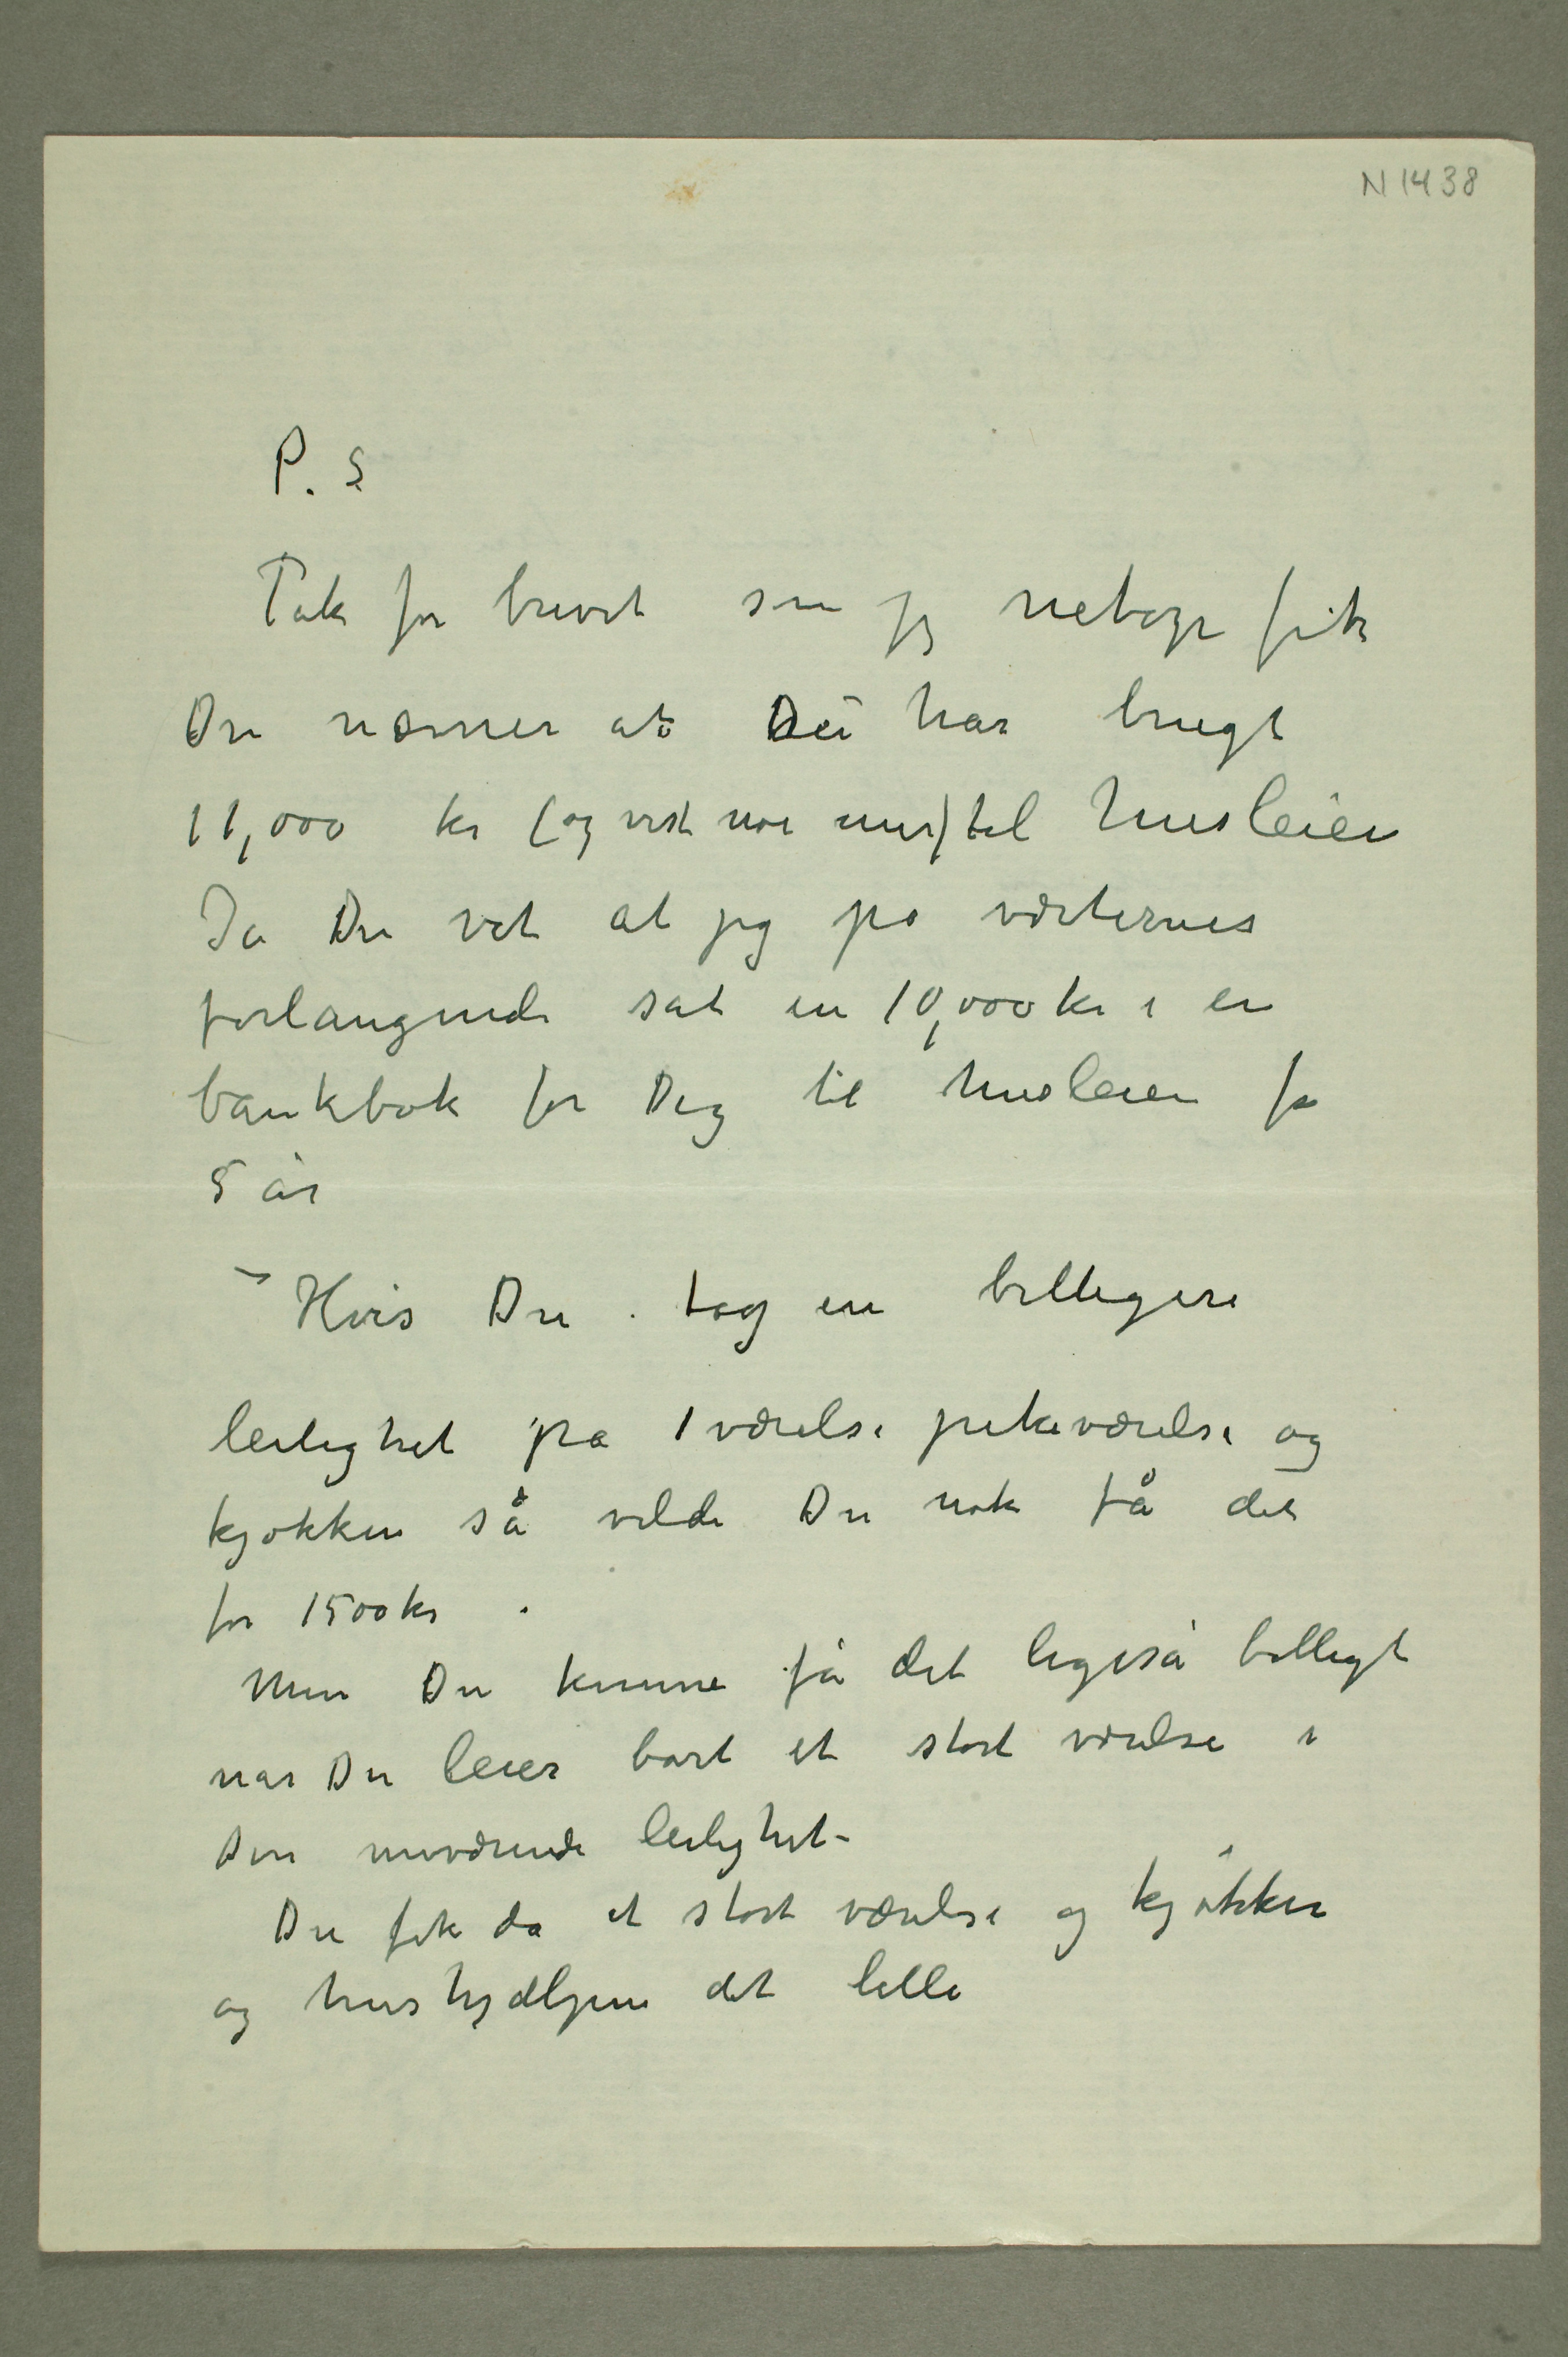 N 1438
P. S
Tak for brevet som jeg netop fik
Du nævner at Du har brugt
11,000 kr (og vist noe mer) til husleien
Ja Du vet at jeg på værternes
forlangende sat en 10,000 kr i en
bankbok for Dig til husleien for
5 år
– Hvis Du tog en billigere
leilighet på 1 værelse pikeværelse og
kjøkken så vilde Du nok få det
for 1500 kr.
Men Du kunne få det ligeså billigt
når Du leier bort et stort værelse i
Din nuværende leilighet –
Du fik da et stort værelse og kjøkken
og hushjælpen det lille